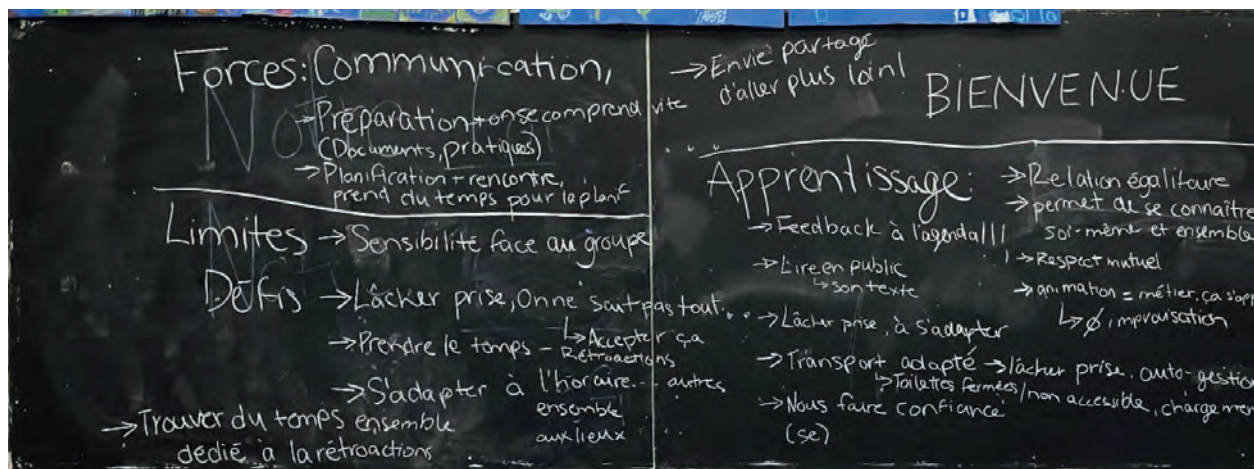 Forces: Communication,
→ Préparation + on se comprend vite
(Documents, pratiques)
→ Planification + rencontre,
prend du temps pour la planif
→ Envie partagé
d'aller plus loin!
Limites → Sensibilité face au groupe
Défis → Lâcher prise, On ne sait pas tout...
↳ Accepter ça
→ Prendre le temps - Rétroactions
→ S'adapter à l'horaire... autres
ensemble
aux lieux
→ Trouver du temps ensemble
dédié à la rétroactions
BIENVENUE
Apprentissage:
→ Feedback à l'agenda!!!
→ Lire en public
↳ son texte
→ Lâcher prise, à s'adapter
→ Transport adapté → lâcher prise, auto-gestion
↳ Toilettes fermées/non accessible, chargeme
→ Nous faire confiance
(se)
→ Relation égalitaire
→ permet de se connaître
soi-même et ensemble
→ Respect mutuel
→ animation = métier, ça s'app
↳ ∅ improvisation